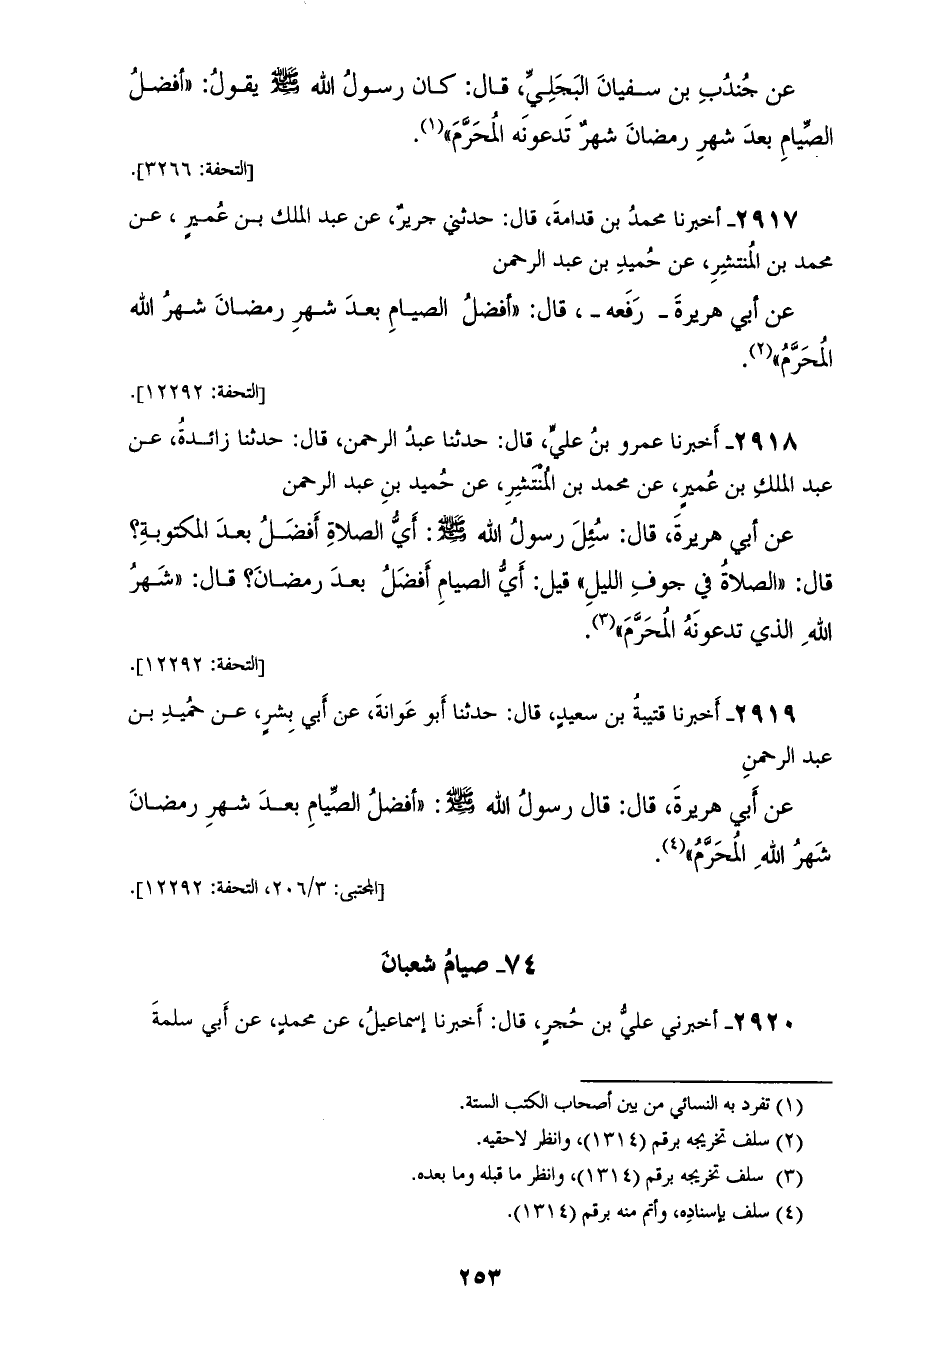 عن جُندُبِ بن سفيانَ البَجَلِيِّ، قال: كان رسولُ الله ﷺ يقولُ: «أفضلُ
الصِّيامِ بعدَ شهرِ رمضانَ شهرٌ تَدعونَه المُحَرَّمَ»(١).
[التحفة: ٣٢٦٦].
٢٩١٧ـ أخبرنا محمدُ بن قدامةَ، قال: حدثني جريرٌ، عن عبد الملك بن عُميرٍ ، عن
محمد بن المُنتشِرِ، عن حُميدِ بن عبد الرحمن
عن أبي هريرةَ ـ رَفَعه ـ ، قال: «أفضلُ الصيامِ بعدَ شهرِ رمضانَ شهرُ الله
المُحَرَّمُ»(٢).
[التحفة: ١٢٢٩٢].
٢٩١٨ـ أَخبرنا عمرو بنُ عليٍّ، قال: حدثنا عبدُ الرحمن، قال: حدثنا زائدةُ، عن
عبد الملكِ بن عُميرٍ، عن محمد بن المُنْتَشِرِ، عن حُميد بنِ عبد الرحمن
عن أبي هريرةَ، قال: سُئِلَ رسولُ الله ﷺ: أَيُّ الصلاةِ أَفضَلُ بعدَ المكتوبةِ؟
قال: «الصلاةُ في جوفِ الليلِ» قيل: أَيُّ الصيامِ أَفضَلُ بعدَ رمضانَ؟ قال: «شَهرُ
اللهِ الذي تدعونَهُ المُحَرَّمَ»(٣).
[التحفة: ١٢٢٩٢].
٢٩١٩ـ أَخبرنا قتيبةُ بن سعيدٍ، قال: حدثنا أَبو عَوانةَ، عن أَبي بِشرٍ، عن حُميدِ بن
عبد الرحمنِ
عن أَبي هريرةَ، قال: قال رسولُ الله ﷺ: «أفضلُ الصِّيامِ بعدَ شهرِ رمضانَ
شَهرُ اللهِ المُحَرَّمُ»(٤).
[المجتبى: ٢٠٦/٣، التحفة: ١٢٢٩٢].
٧٤ـ صيامُ شعبانَ
٢٩٢٠ـ أخبرني عليُّ بن حُجرٍ، قال: أَخبرنا إسماعيلُ، عن محمدٍ، عن أَبي سلمةَ
(١) تفرد به النسائي من بين أصحاب الكتب الستة.
(٢) سلف تخريجه برقم (١٣١٤)، وانظر لاحقيه.
(٣) سلف تخريجه برقم (١٣١٤)، وانظر ما قبله وما بعده.
(٤) سلف بإسناده، وأتم منه برقم (١٣١٤).
٢٥٣